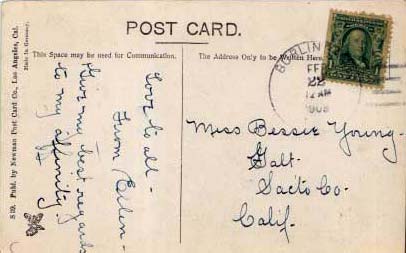 POST CARD.
This Space may be used for Communication.
The Address Only to be Written Here.
S 19. Publ. by Newman Post Card Co., Los Angeles, Cal.
Made in Germany.
Love to all -
From Ellen -
Give my best regards
to my affinity.
BURLIN
FEB
22
12 AM
Miss Bessie Young.
Galt.
Sacto Co.
Calif.